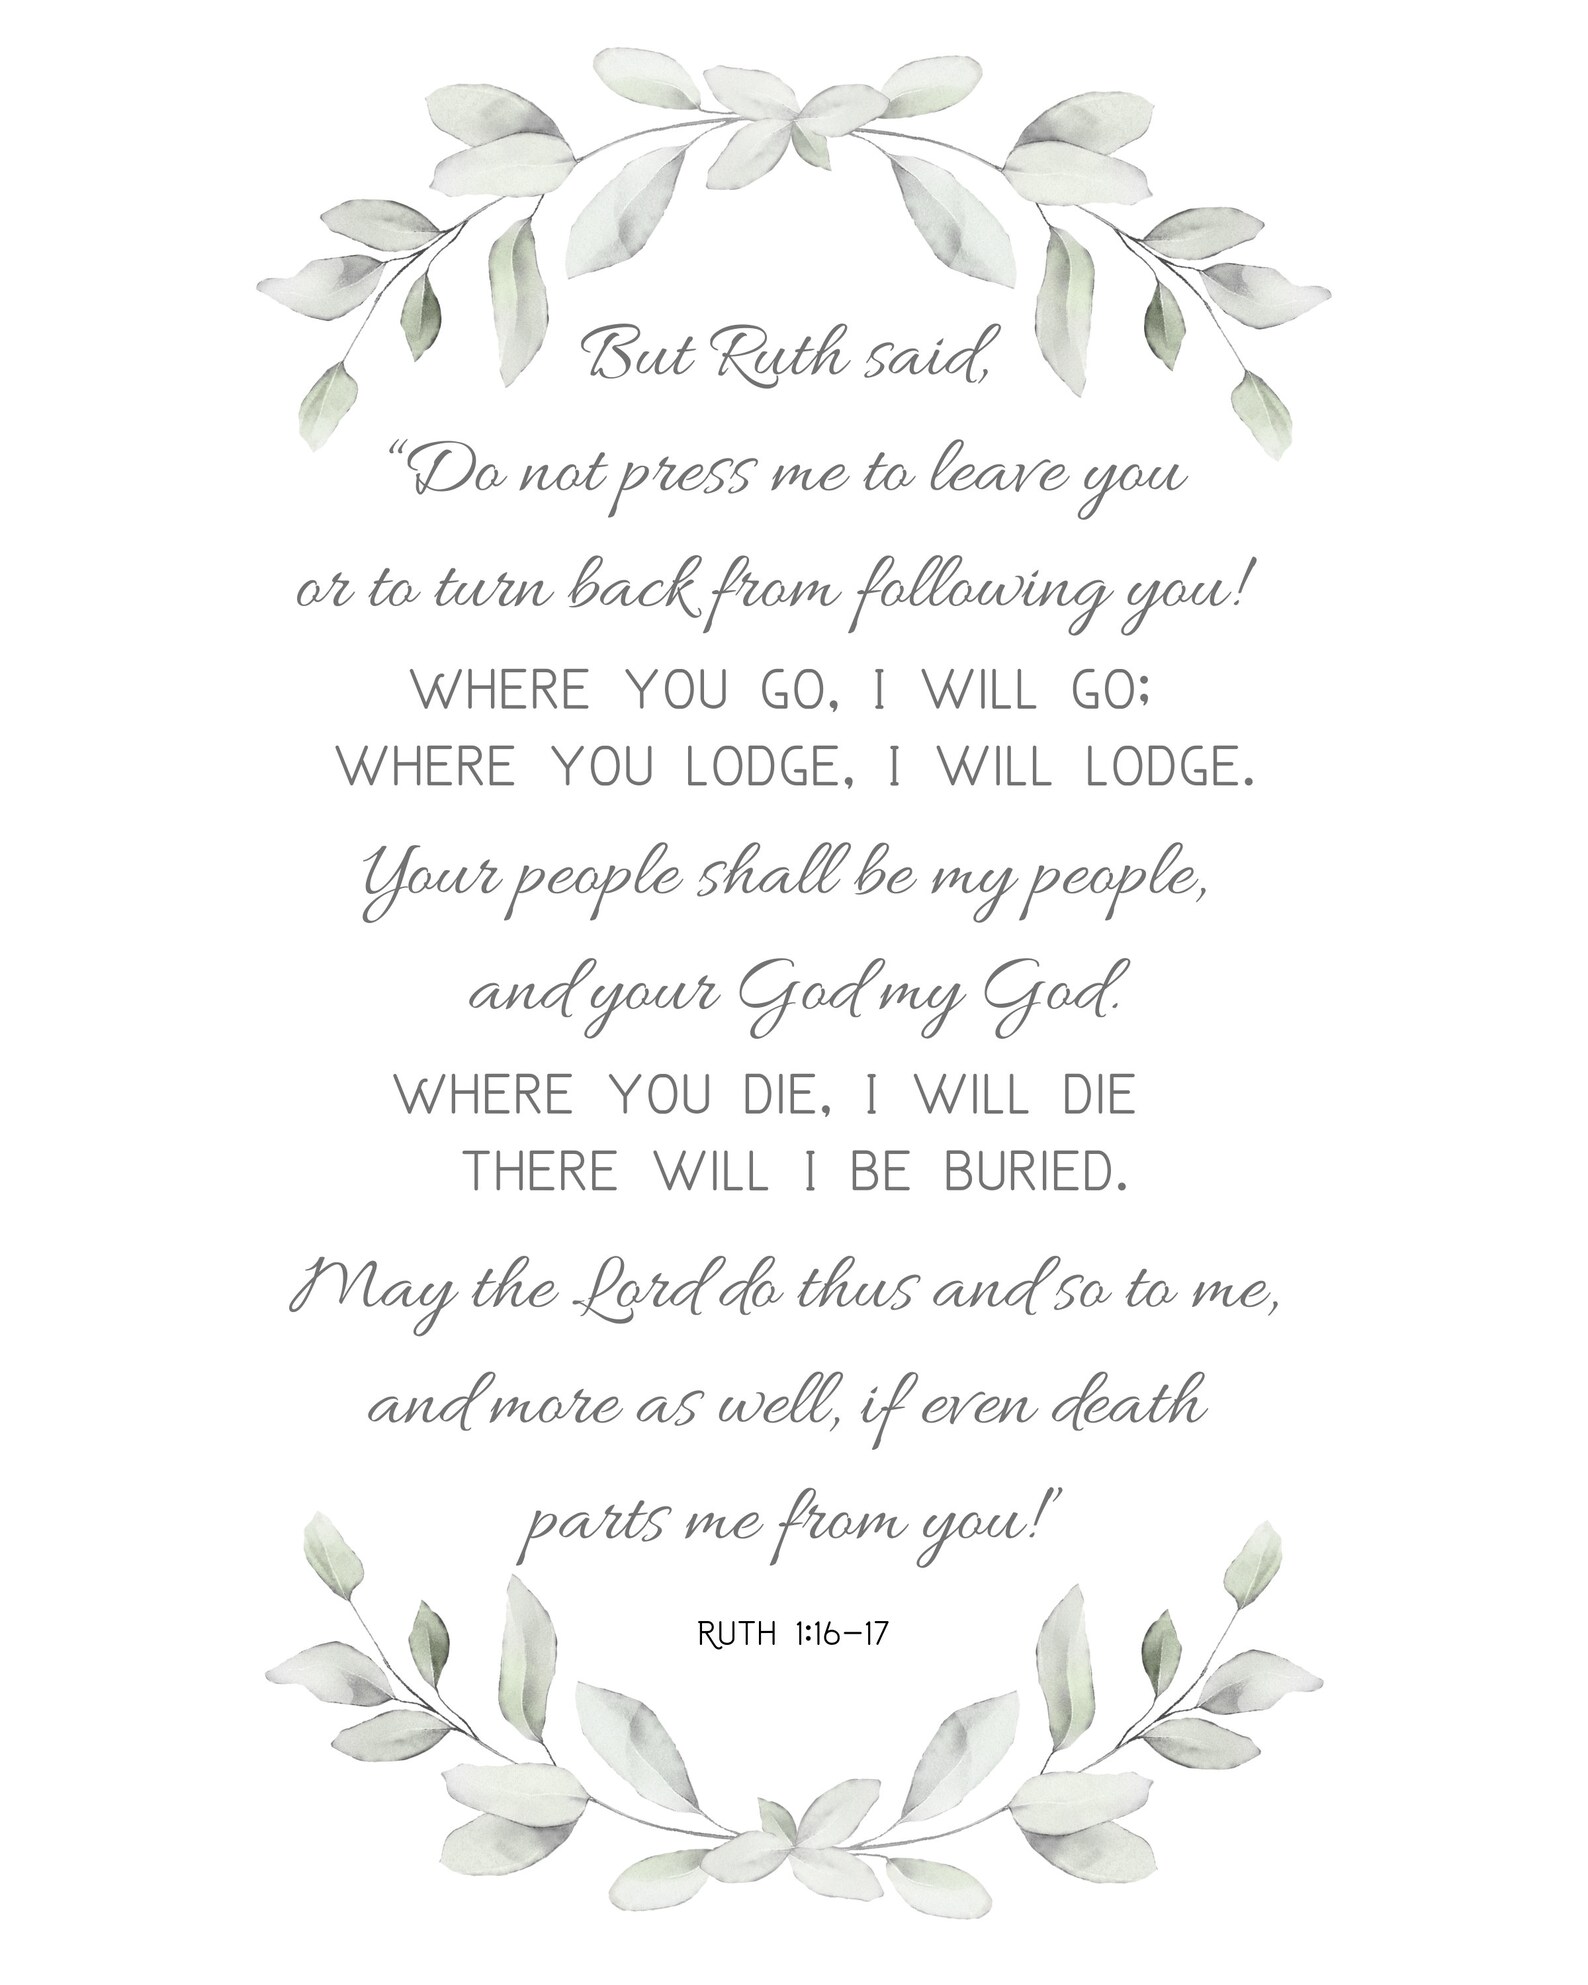 But Ruth said,
“Do not press me to leave you
or to turn back from following you!
WHERE YOU GO, I WILL GO;
WHERE YOU LODGE, I WILL LODGE.
Your people shall be my people,
and your God my God.
WHERE YOU DIE, I WILL DIE
THERE WILL I BE BURIED.
May the Lord do thus and so to me,
and more as well, if even death
parts me from you!”
RUTH 1:16–17